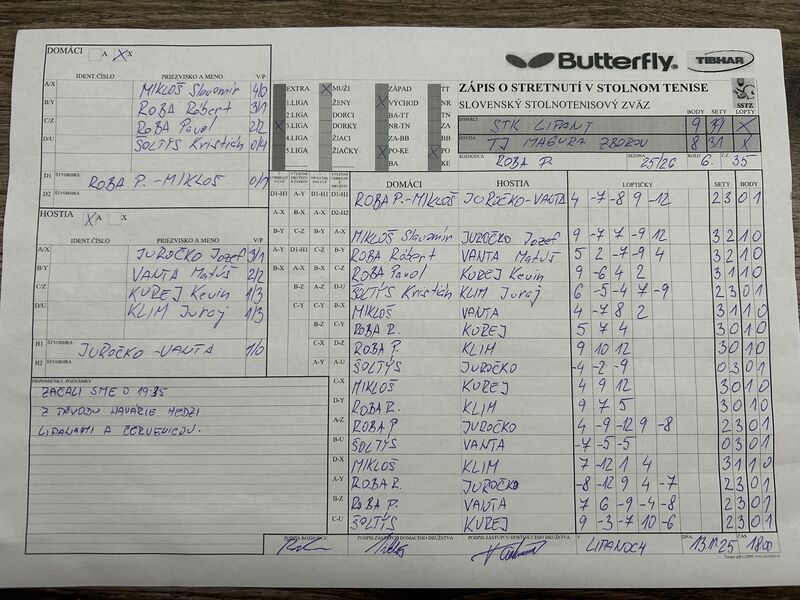 DOMÁCI A X
Butterfly. TIBHAR
IDENT.ČÍSLO PRIEZVISKO A MENO V/P
A/X MIKLOŠ Slavomír 4/0
B/Y ROBA Róbert 3/1
C/Z ROBA Pavol 2/2
D/U ŠOLTÝS Kristián 0/4
D1 ŠTVORHRA ROBA P. - MIKLOŠ 0/1
D2 ŠTVORHRA
EXTRA MUŽI ZÁPAD TT
1.LIGA ŽENY VÝCHOD NR
2.LIGA DORCI BA-TT TN
3.LIGA DORKY NR-TN ZA
4.LIGA ŽIACI ZA-BB BB
5.LIGA ŽIAČKY PO-KE PO
BA KE
ZÁPIS O STRETNUTÍ V STOLNOM TENISE
SLOVENSKÝ STOLNOTENISOVÝ ZVÄZ
SSTZ
BODY SETY LOPTY
DOMÁCI STK LIPANY 9 39 X
HOSTIA TJ MAGURA ZBOROV 8 31 X
ROZHODCA ROBA P. SEZÓNA 25/26 KOLO 6. Č. 35
HOSTIA A X
IDENT.ČÍSLO PRIEZVISKO A MENO V/P
A/X JUROČKO Jozef 3/1
B/Y VANTA Matúš 2/2
C/Z KUREJ Kevin 1/3
D/U KLIM Juraj 1/3
H1 ŠTVORHRA JUROČKO - VANTA 1/0
H2 ŠTVORHRA
PRIPOMIENKY, POZNÁMKY
ZAČALI SME O 19:35
Z DÔVODU HAVÁRIE MEDZI
LIPANAMI A ČERVENICOU.
DOMÁCI HOSTIA LOPTIČKY SETY BODY
D1-H1 ROBA P.-MIKLOŠ JUROČKO-VANTA 4 -7 -8 9 -12 2 3 0 1
D2-H2
A-X MIKLOŠ Slavomír JUROČKO Jozef 9 -7 7 -9 12 3 2 1 0
B-Y ROBA Róbert VANTA Matúš 5 2 -7 -9 4 3 2 1 0
C-Z ROBA Pavol KUREJ Kevin 9 -6 4 2 3 1 1 0
D-U ŠOLTÝS Kristián KLIM Juraj 6 -5 -4 7 -9 2 3 0 1
B-X MIKLOŠ VANTA 4 -7 8 2 3 1 1 0
C-Y ROBA R. KUREJ 5 7 4 3 0 1 0
D-Z ROBA P. KLIM 9 10 12 3 0 1 0
A-U ŠOLTÝS JUROČKO -4 -2 -9 0 3 0 1
C-X MIKLOŠ KUREJ 4 9 12 3 0 1 0
D-Y ROBA R. KLIM 9 7 5 3 0 1 0
A-Z ROBA P JUROČKO 4 -9 -12 9 -8 2 3 0 1
B-U ŠOLTÝS VANTA -7 -5 -5 0 3 0 1
D-X MIKLOŠ KLIM 7 -12 1 4 3 1 1 0
A-Y ROBA R. JUROČKO -8 -12 9 4 -7 2 3 0 1
B-Z ROBA P. VANTA 7 6 -9 -4 -8 2 3 0 1
C-U ŠOLTÝS KUREJ 9 -3 -7 10 -6 2 3 0 1
PODPIS ROZHODCU PODPIS ZÁSTUPCU DOMÁCEHO DRUŽSTVA PODPIS ZÁSTUPCU HOSŤUJÚCEHO DRUŽSTVA V LIPANOCH DŇA 13.11.25 ČAS 18:00